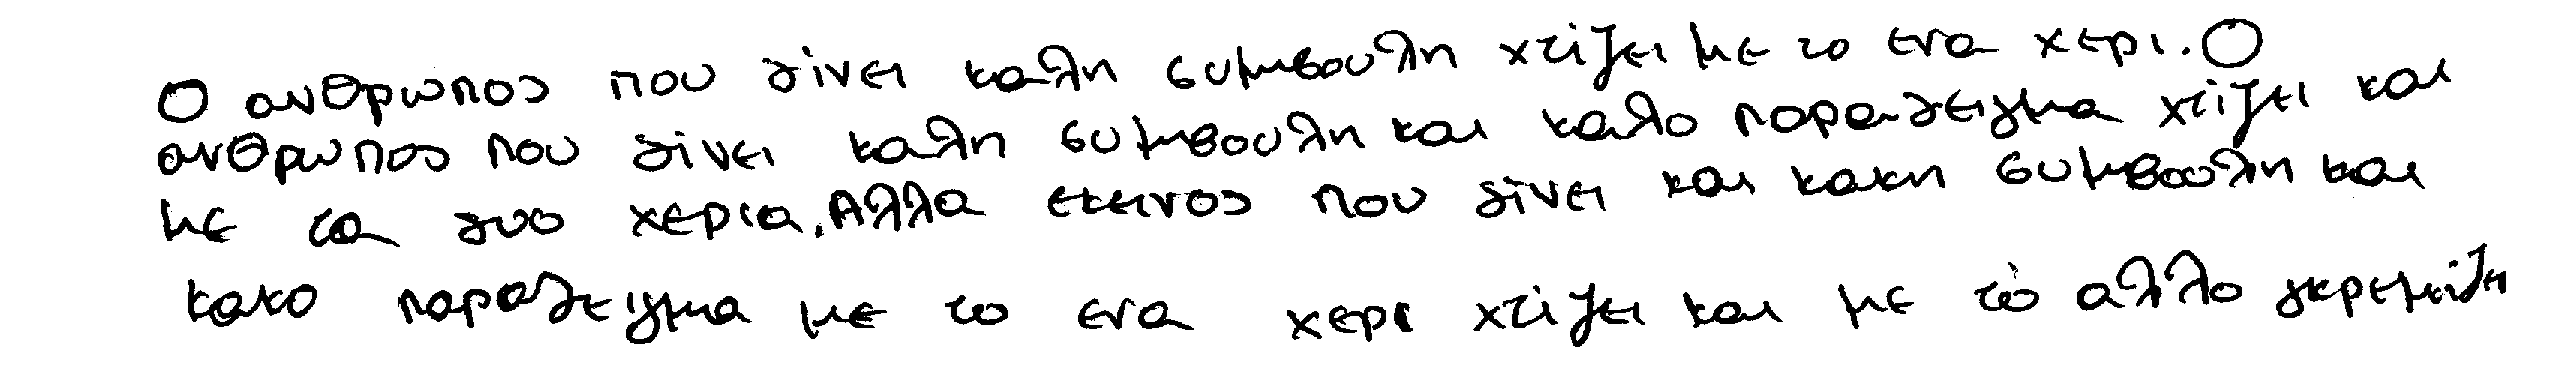 Ο ανθρωπος που δινει καλη συμβουλη χτιζει με το ενα χερι. Ο
ανθρωπος που δινει καλη συμβουλη και καλο παραδειγμα χτιζει και
με τα δυο χερια. Αλλα εκεινος που δινει και κακη συμβουλη και
κακο παραδειγμα με το ενα χερι χτιζει και με το αλλο γκρεμιζει